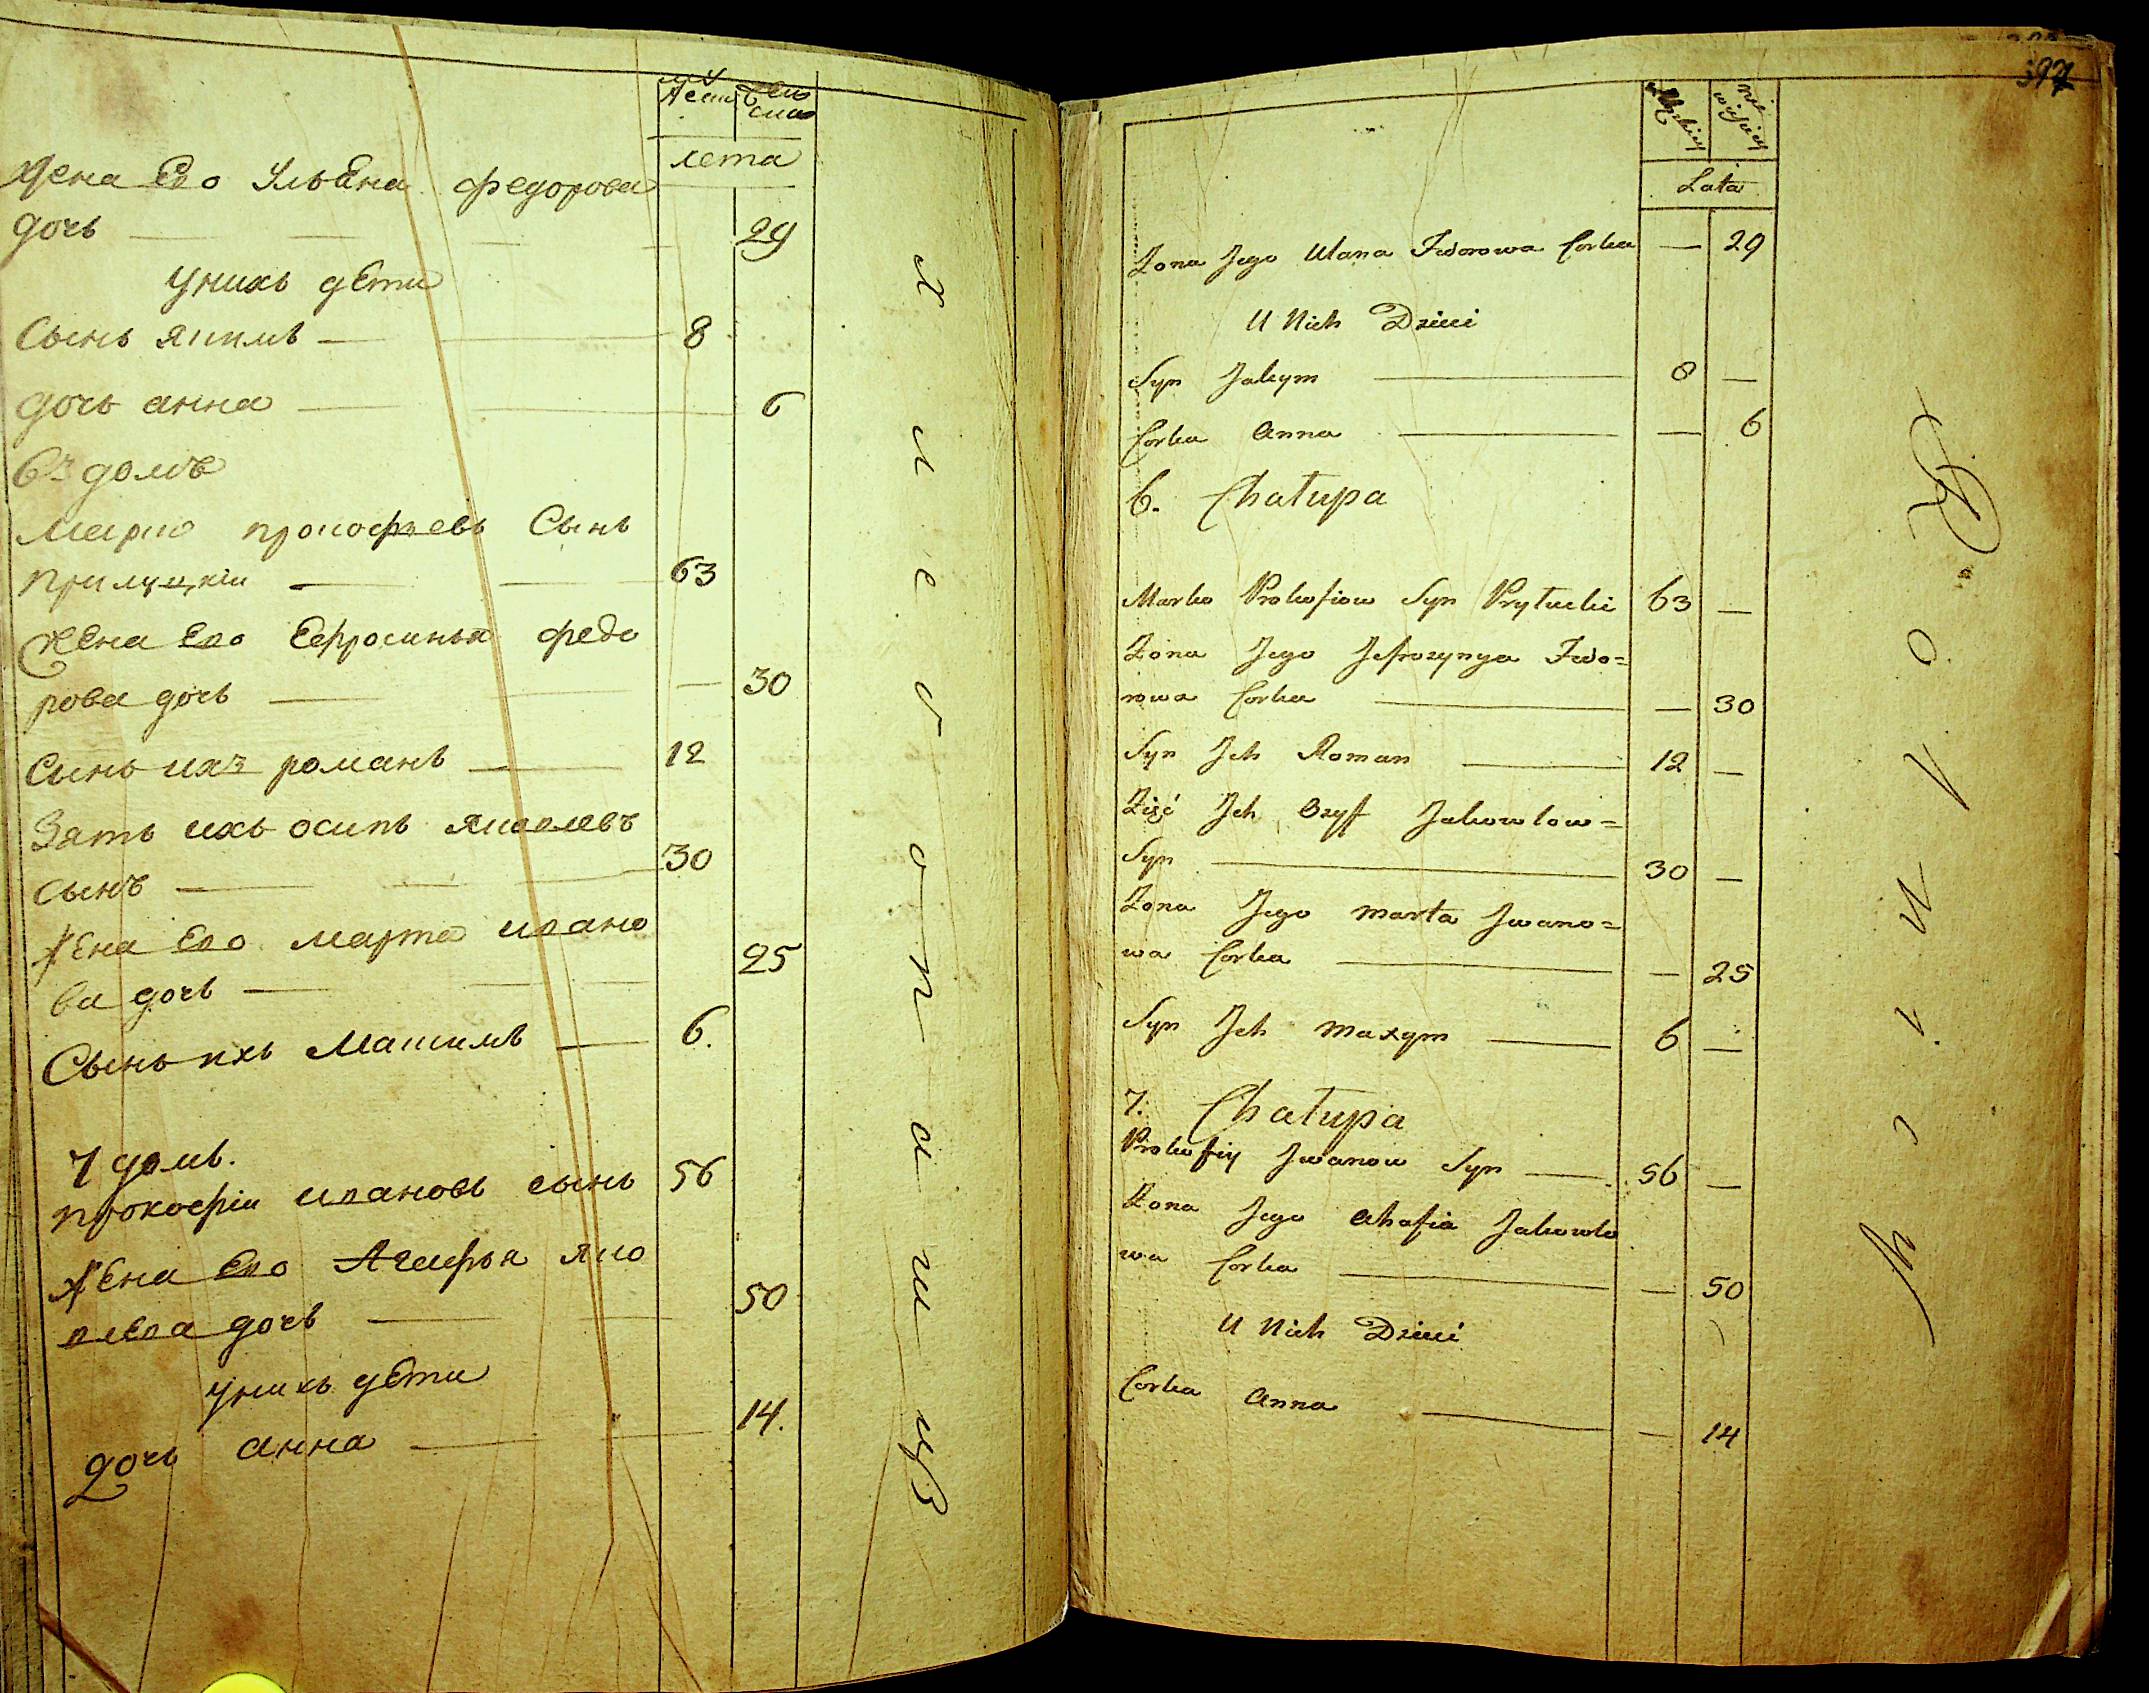 лета
Жена Его Ульяна федорова
дочь 29
у нихъ дети
Сынъ якимъ 8
дочь анна 6
6й домъ
Марко прокофьевъ Сынъ
прилуцкiи 63
Жена Его Ефросинья федо
рова дочь 30
Сынъ ихъ романъ 12
Зять ихъ осипъ яковлевъ
сынъ 30
Жена Его марта ивано
ва дочь 25
Сынъ ихъ Макимъ 6.
7 домъ.
прокофiи ивановъ сынъ 56
Жена Его Агафья яко
влева дочь 50
у нихъ дети
дочь анна 14.
хлебопашцы
397
Męzkiey
nie wieściey
Lata
Zona Jego Ulana Fedorowa Corka — 29
U Nich Dzieci
Syn Jakym 8 —
Corka Anna — 6
6. Chałupa
Marko Prokofiow Syn Pryłucki 63 —
Zona Jego Jefrozynya Fedo=
rowa Corka — 30
Syn Jch Roman 12 —
Zięć Jch Ozyf Jakowlow=
Syn 30 —
Zona Jego Marta Jwano=
wa Corka — 25
Syn Jch Maxym 6 —
7. Chałupa
Prokofiy Jwanow Syn 56 —
Zona Jego Ahafia Jakowlo
wa Corka — 50
U Nich Dzieci
Corka Anna — 14
Rolnicy